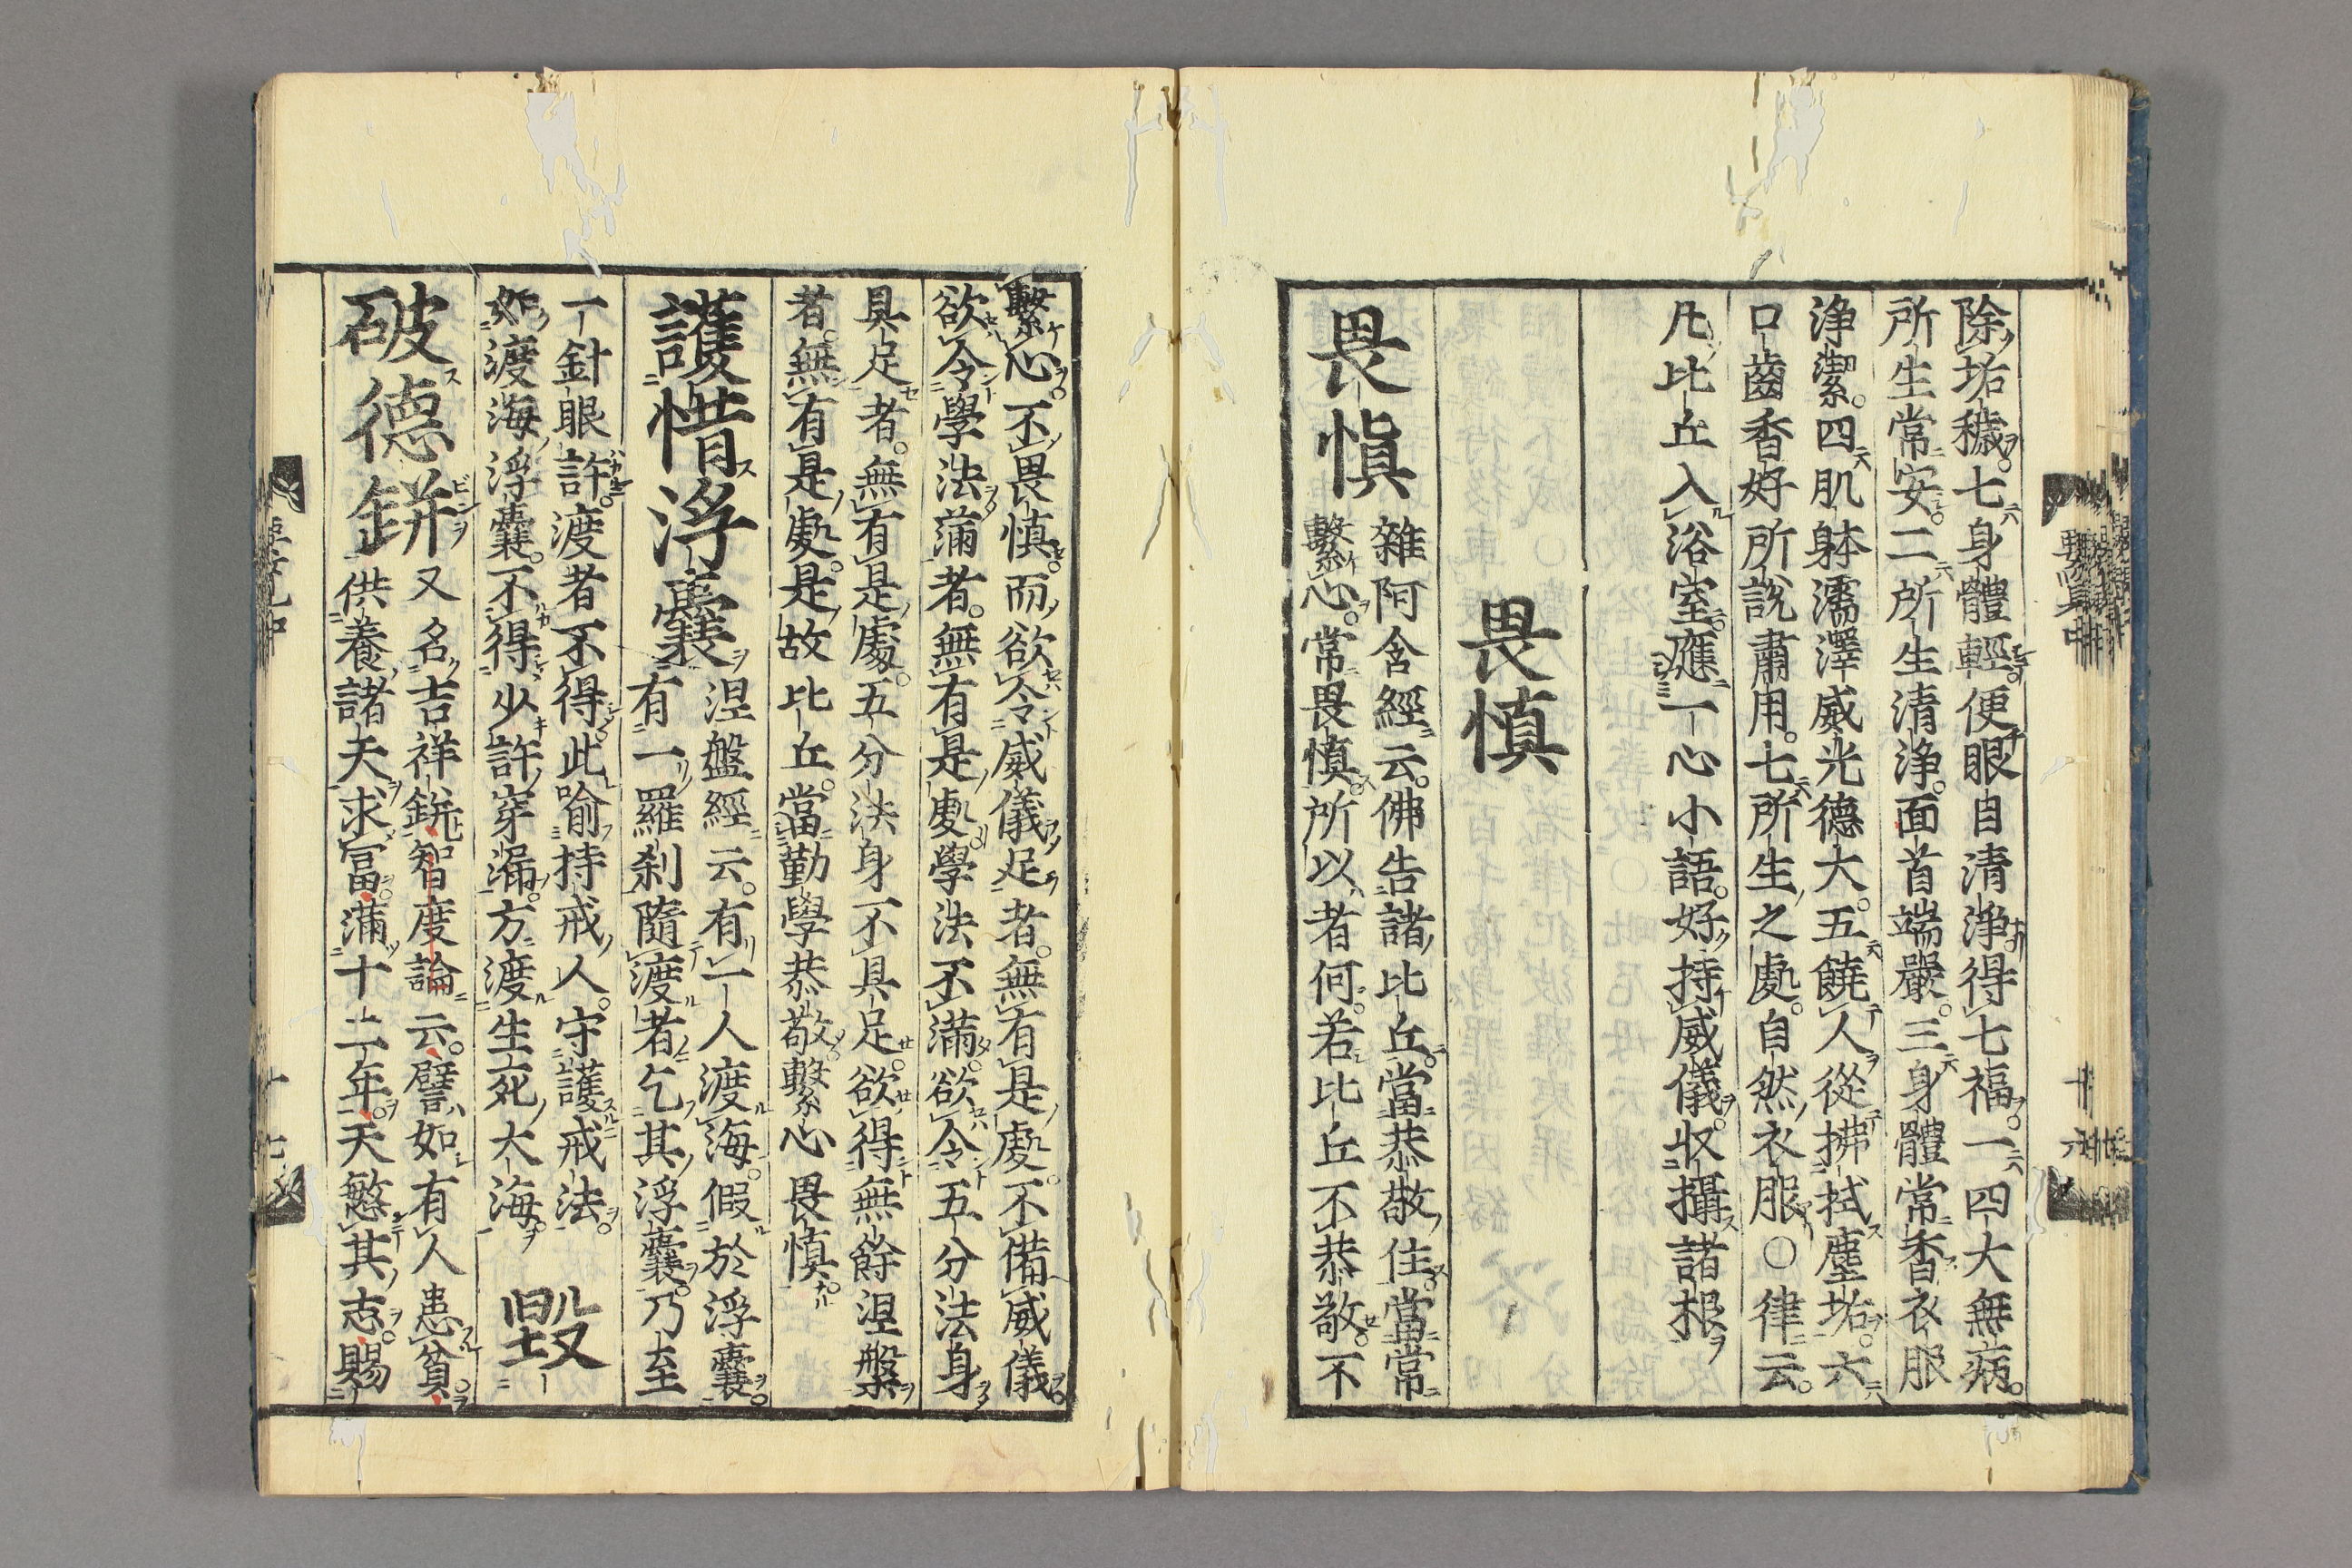 除垢穢七身體輕便眼自清浄得七福一四大無病
所生常安二所生清浄面首端嚴三身體常香衣服
浄潔四肌躰濡澤威光德大五饒人從拂拭塵垢六
口齒香好所說肅用七所生之處自然衣服〇律云
凡比丘入浴室應一心小語好持威儀収攝諸根
畏慎
畏慎
雜阿含經云佛告諸比丘當恭敬住當常
繫心常畏慎所以者何若比丘不恭敬不
繫心不畏慎而欲令威儀足者無有是處不備威儀
欲令學法滿者無有是處學法不滿欲令五分法身
具足者無有是處五分法身不具足欲得無餘涅槃
者無有是處是故比丘當勤學恭敬繫心畏慎
護惜浮囊
涅盤經云有一人渡海假於浮囊
有一羅刹隨渡者乞其浮囊乃至
一針眼許渡者不得此喻持戒人守護戒法
如渡海浮囊不得少許穿漏方渡生死大海
毀
破德缾
又名吉祥鋺智度論云譬如有人患貧
供養諸天求冨滿十二年天愍其志賜